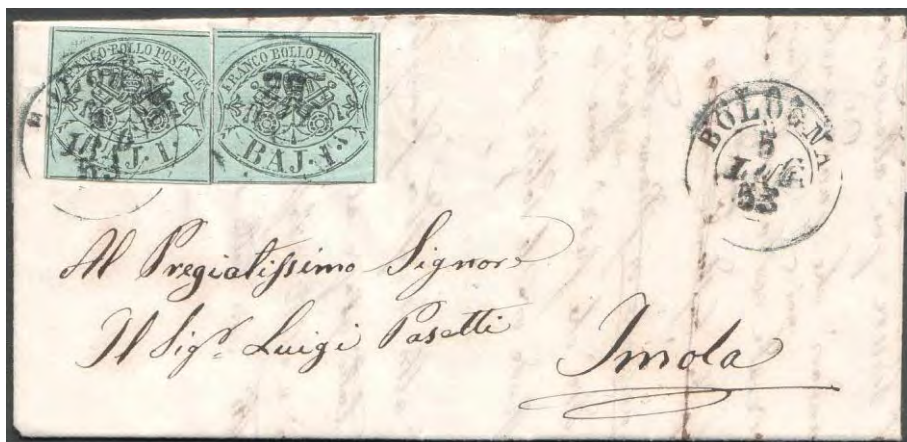 FRANCO BOLLO POSTALE
BAJ. 1.
FRANCO BOLLO POSTALE
BAJ. 1.
BOLOGNA
5
53
Al Pregiatissimo Signore
Il Sigr. Luigi Pasetti
Imola